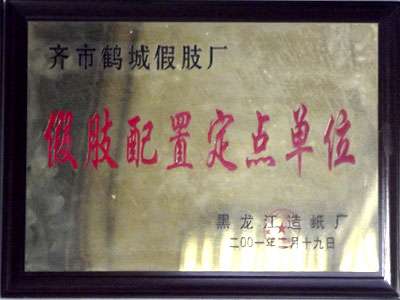 齐市鹤城假肢厂
假肢配置定点单位
黑龙江造纸厂
二00一年二月十九日